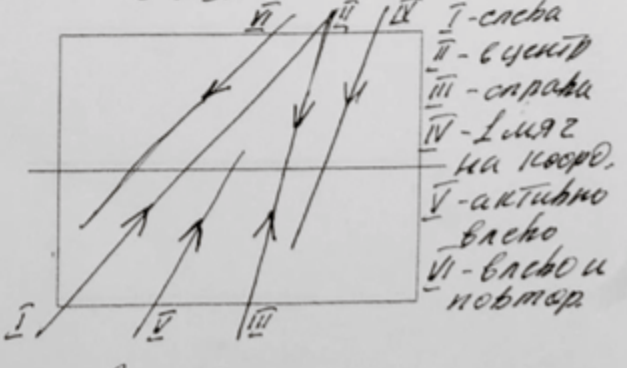 VI II IV
I - слева
II - в центр
III - справа
IV - 1 мяч
на коорд.
V - активно
влево
VI - влево и
повтор.
I V III